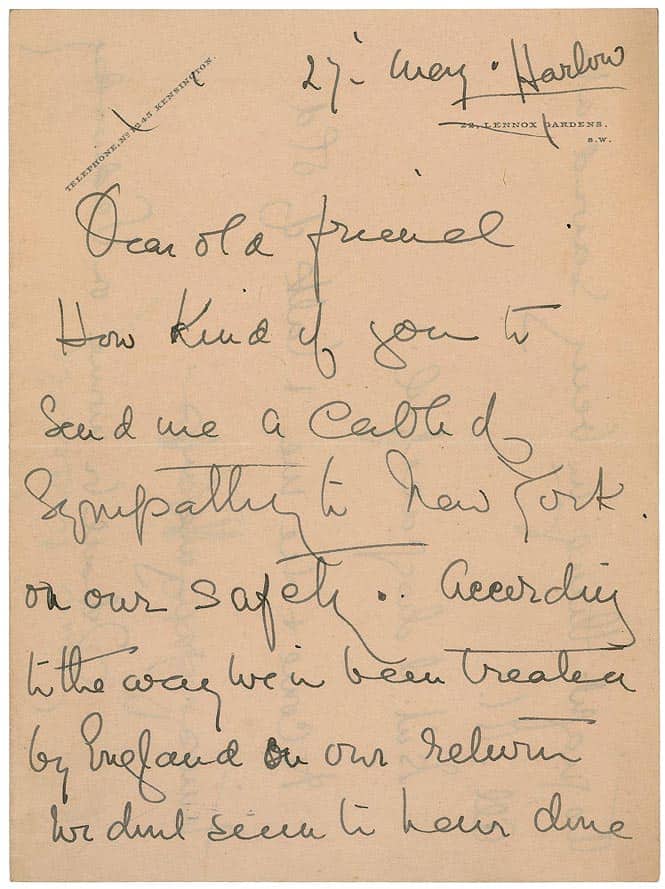 TELEPHONE. No. 1243 KENSINGTON.
27th May. Harlow
22, LENNOX GARDENS.
S.W.
Dear old friend
How kind of you to
send me a cable of
sympathy to New York.
on our safety.. According
to the way we've been treated
by England on our return
we don't seem to have done